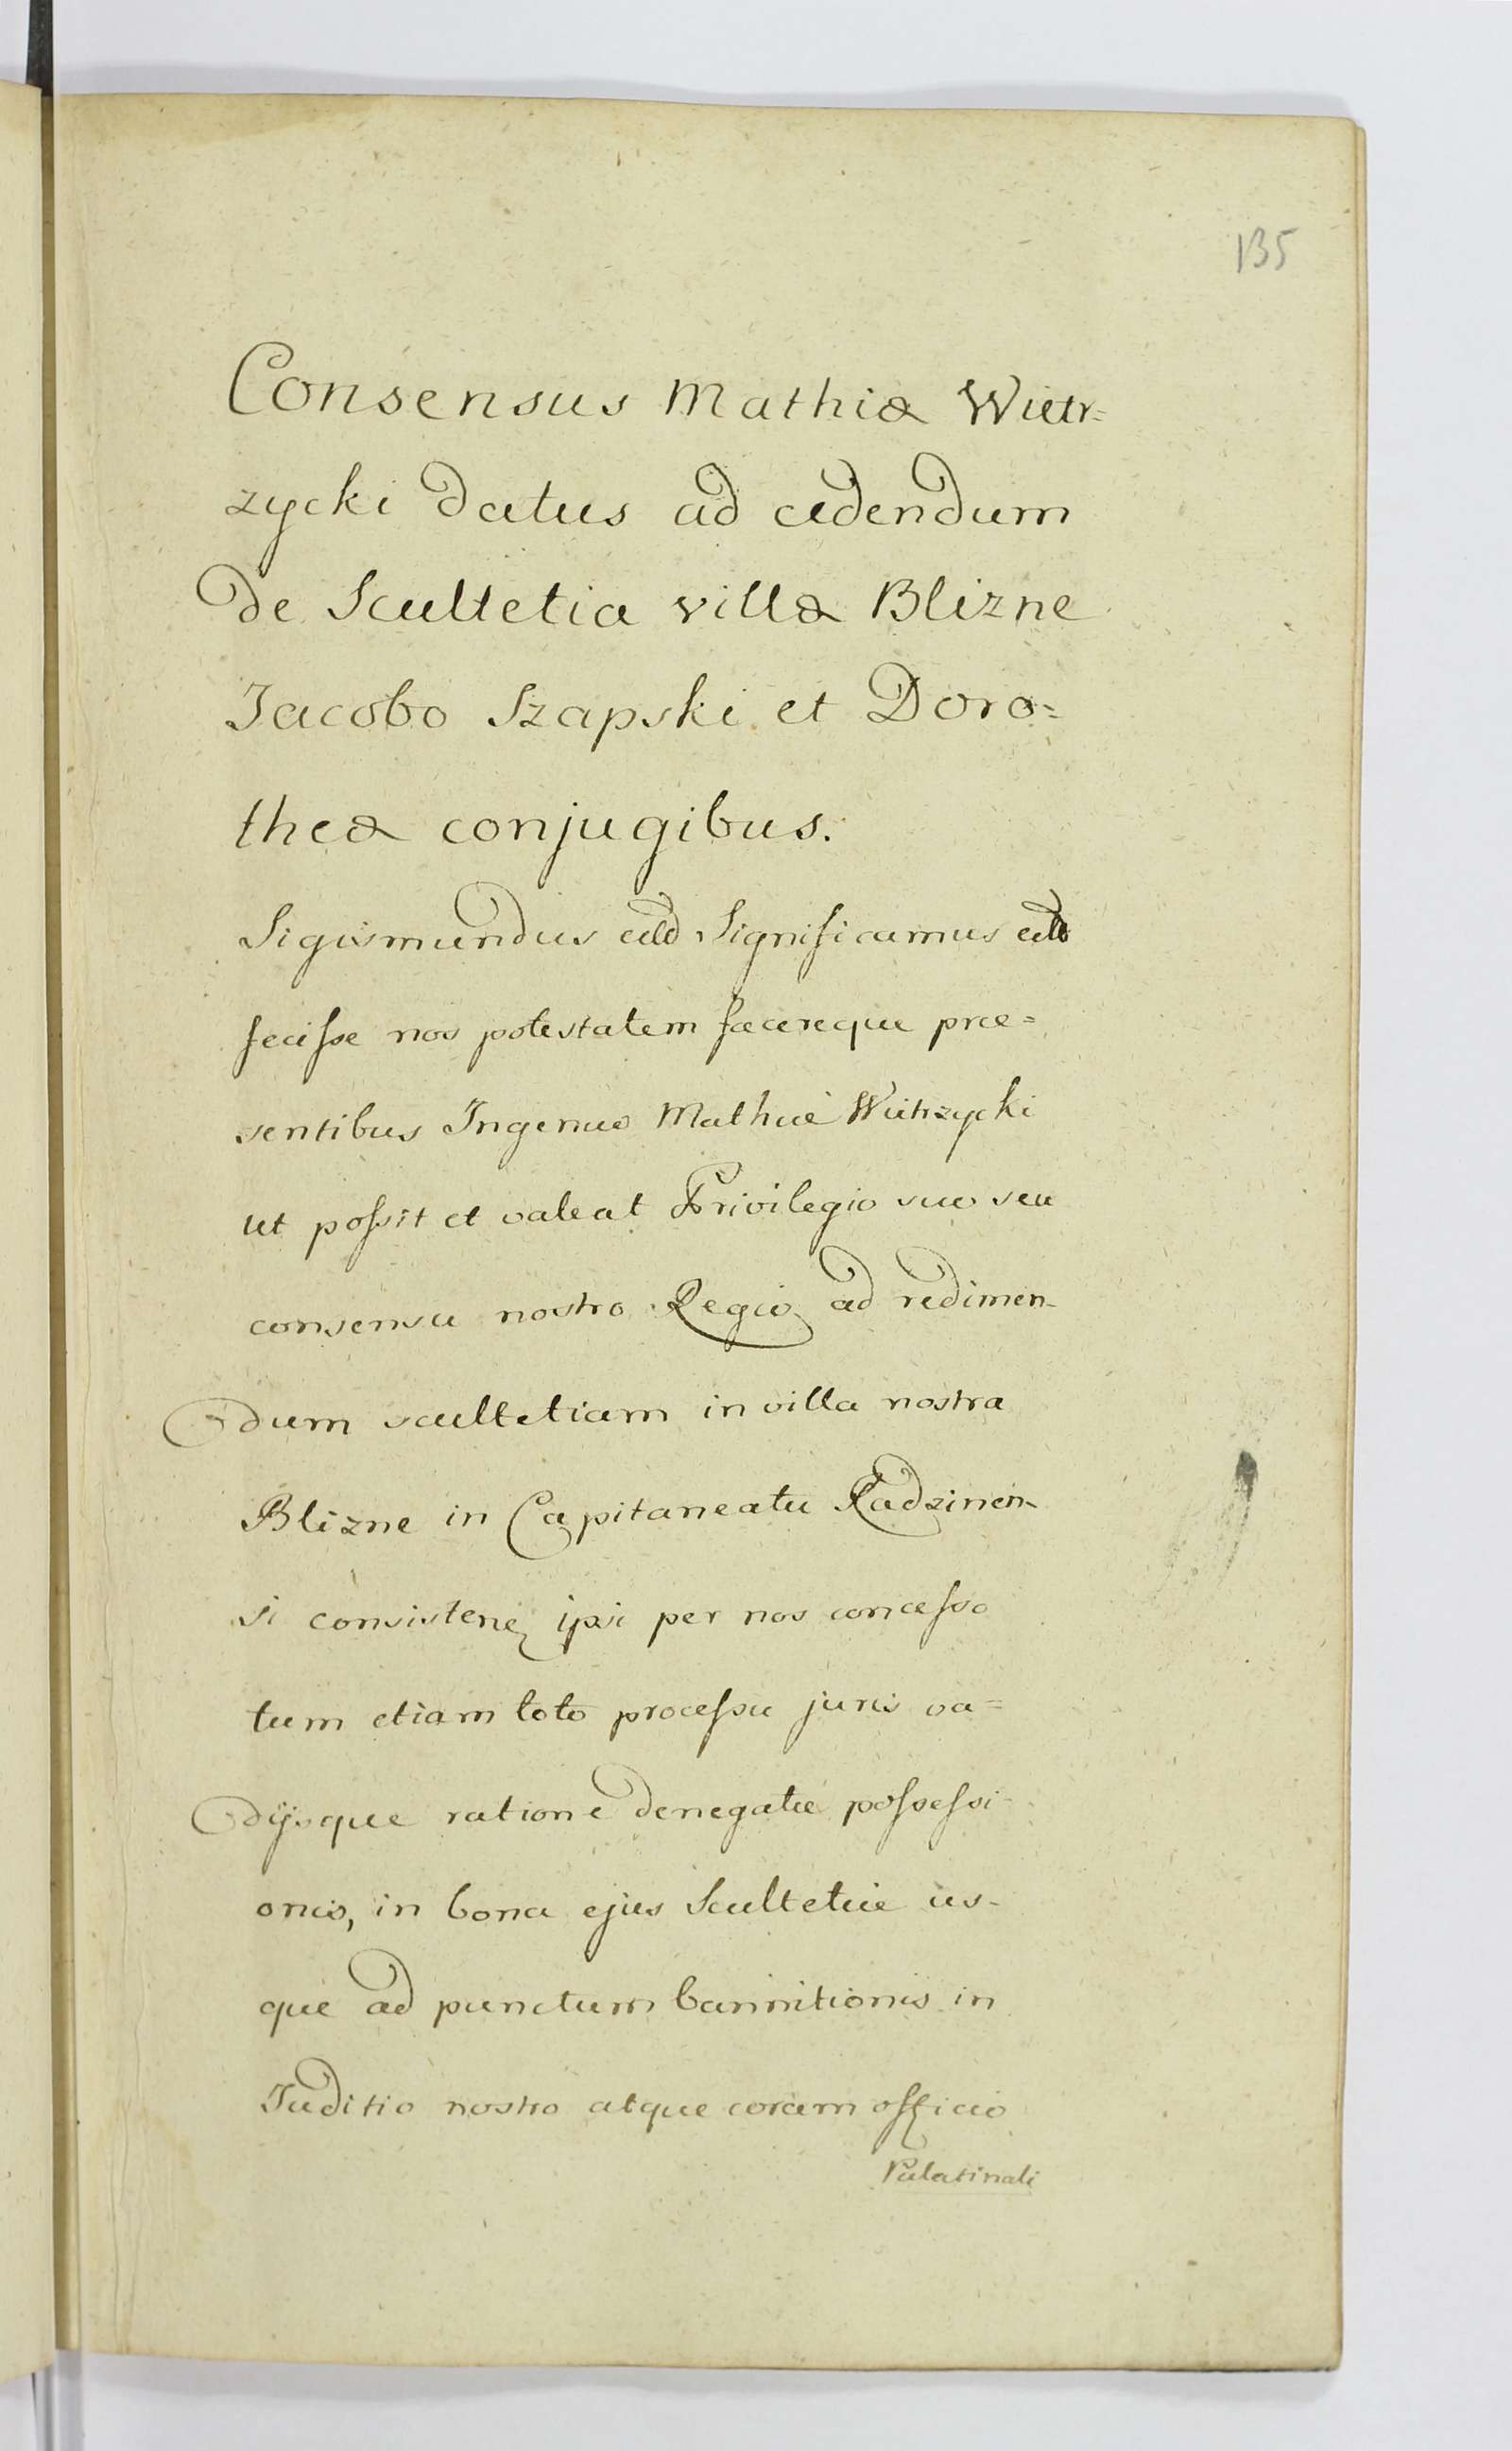 135
Consensus Mathiæ Wietr=
zycki datus ad cedendum
de Scultetia villæ Blizne
Jacobo Szapski et Doro=
theæ conjugibus.
Sigismundus Significamus
fecisse nos potestatem facereque præ=
sentibus Ingenuo Mathiæ Wietrzycki
ut possit et valeat Privilegio suo seu
consensu nostro Regio ad redimen-
dum scultetiam in villa nostra
Blizne in Capitaneatu Radzinen-
si consisten ipsi per nos concesso
tum etiam toto processu juris va=
dijsque ratione denegatæ possessi-
onis, in bona ejus Scultetiæ us-
que ad punctum bannitionis in
Juditio nostro atque coram officio
Palatinali